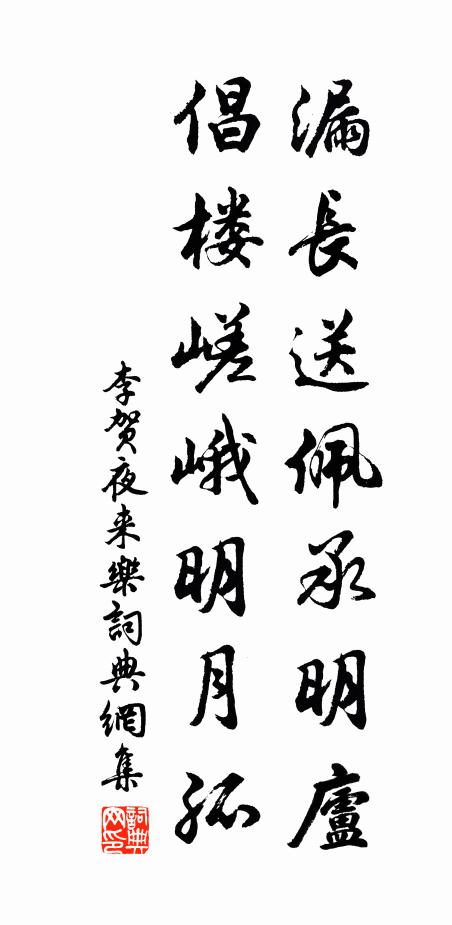 漏長送佩承明廬
倡楼嵯峨明月孤
李贺夜来樂詞典網集
詞典网印